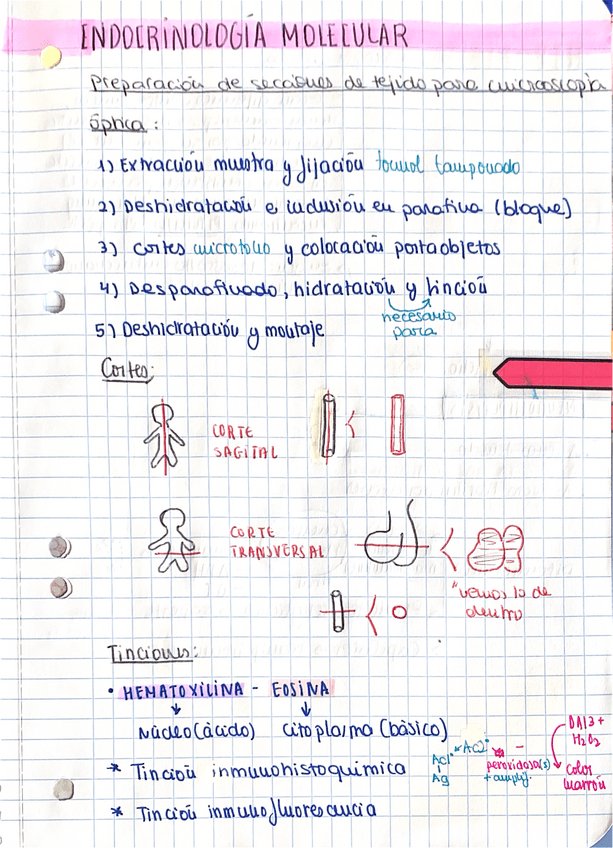 ENDOCRINOLOGÍA MOLECULAR
Preparación de secciones de tejido para microscopia
óptica:
1) Extracción muestra y fijación formol tamponado
2) Deshidratación e inclusión en parafina (bloque)
3) Cortes microtomo y colocación portaobjetos
4) Desparafinado, hidratación y tinción
necesario
para
5) Deshidratación y montaje
Cortes:
CORTE
SAGITAL
CORTE
TRANSVERSAL
"vemos lo de
dentro
Tinciones:
• HEMATOXILINA - EOSINA
Núcleo (ácido) Citoplasma (básico)
* Tinción inmunohistoquímica
Ac1° - Ac2° -
Ag
peroxidasa(s)
+ amplif.
DAB +
H2O2
color
marrón
* Tinción inmunofluorescencia